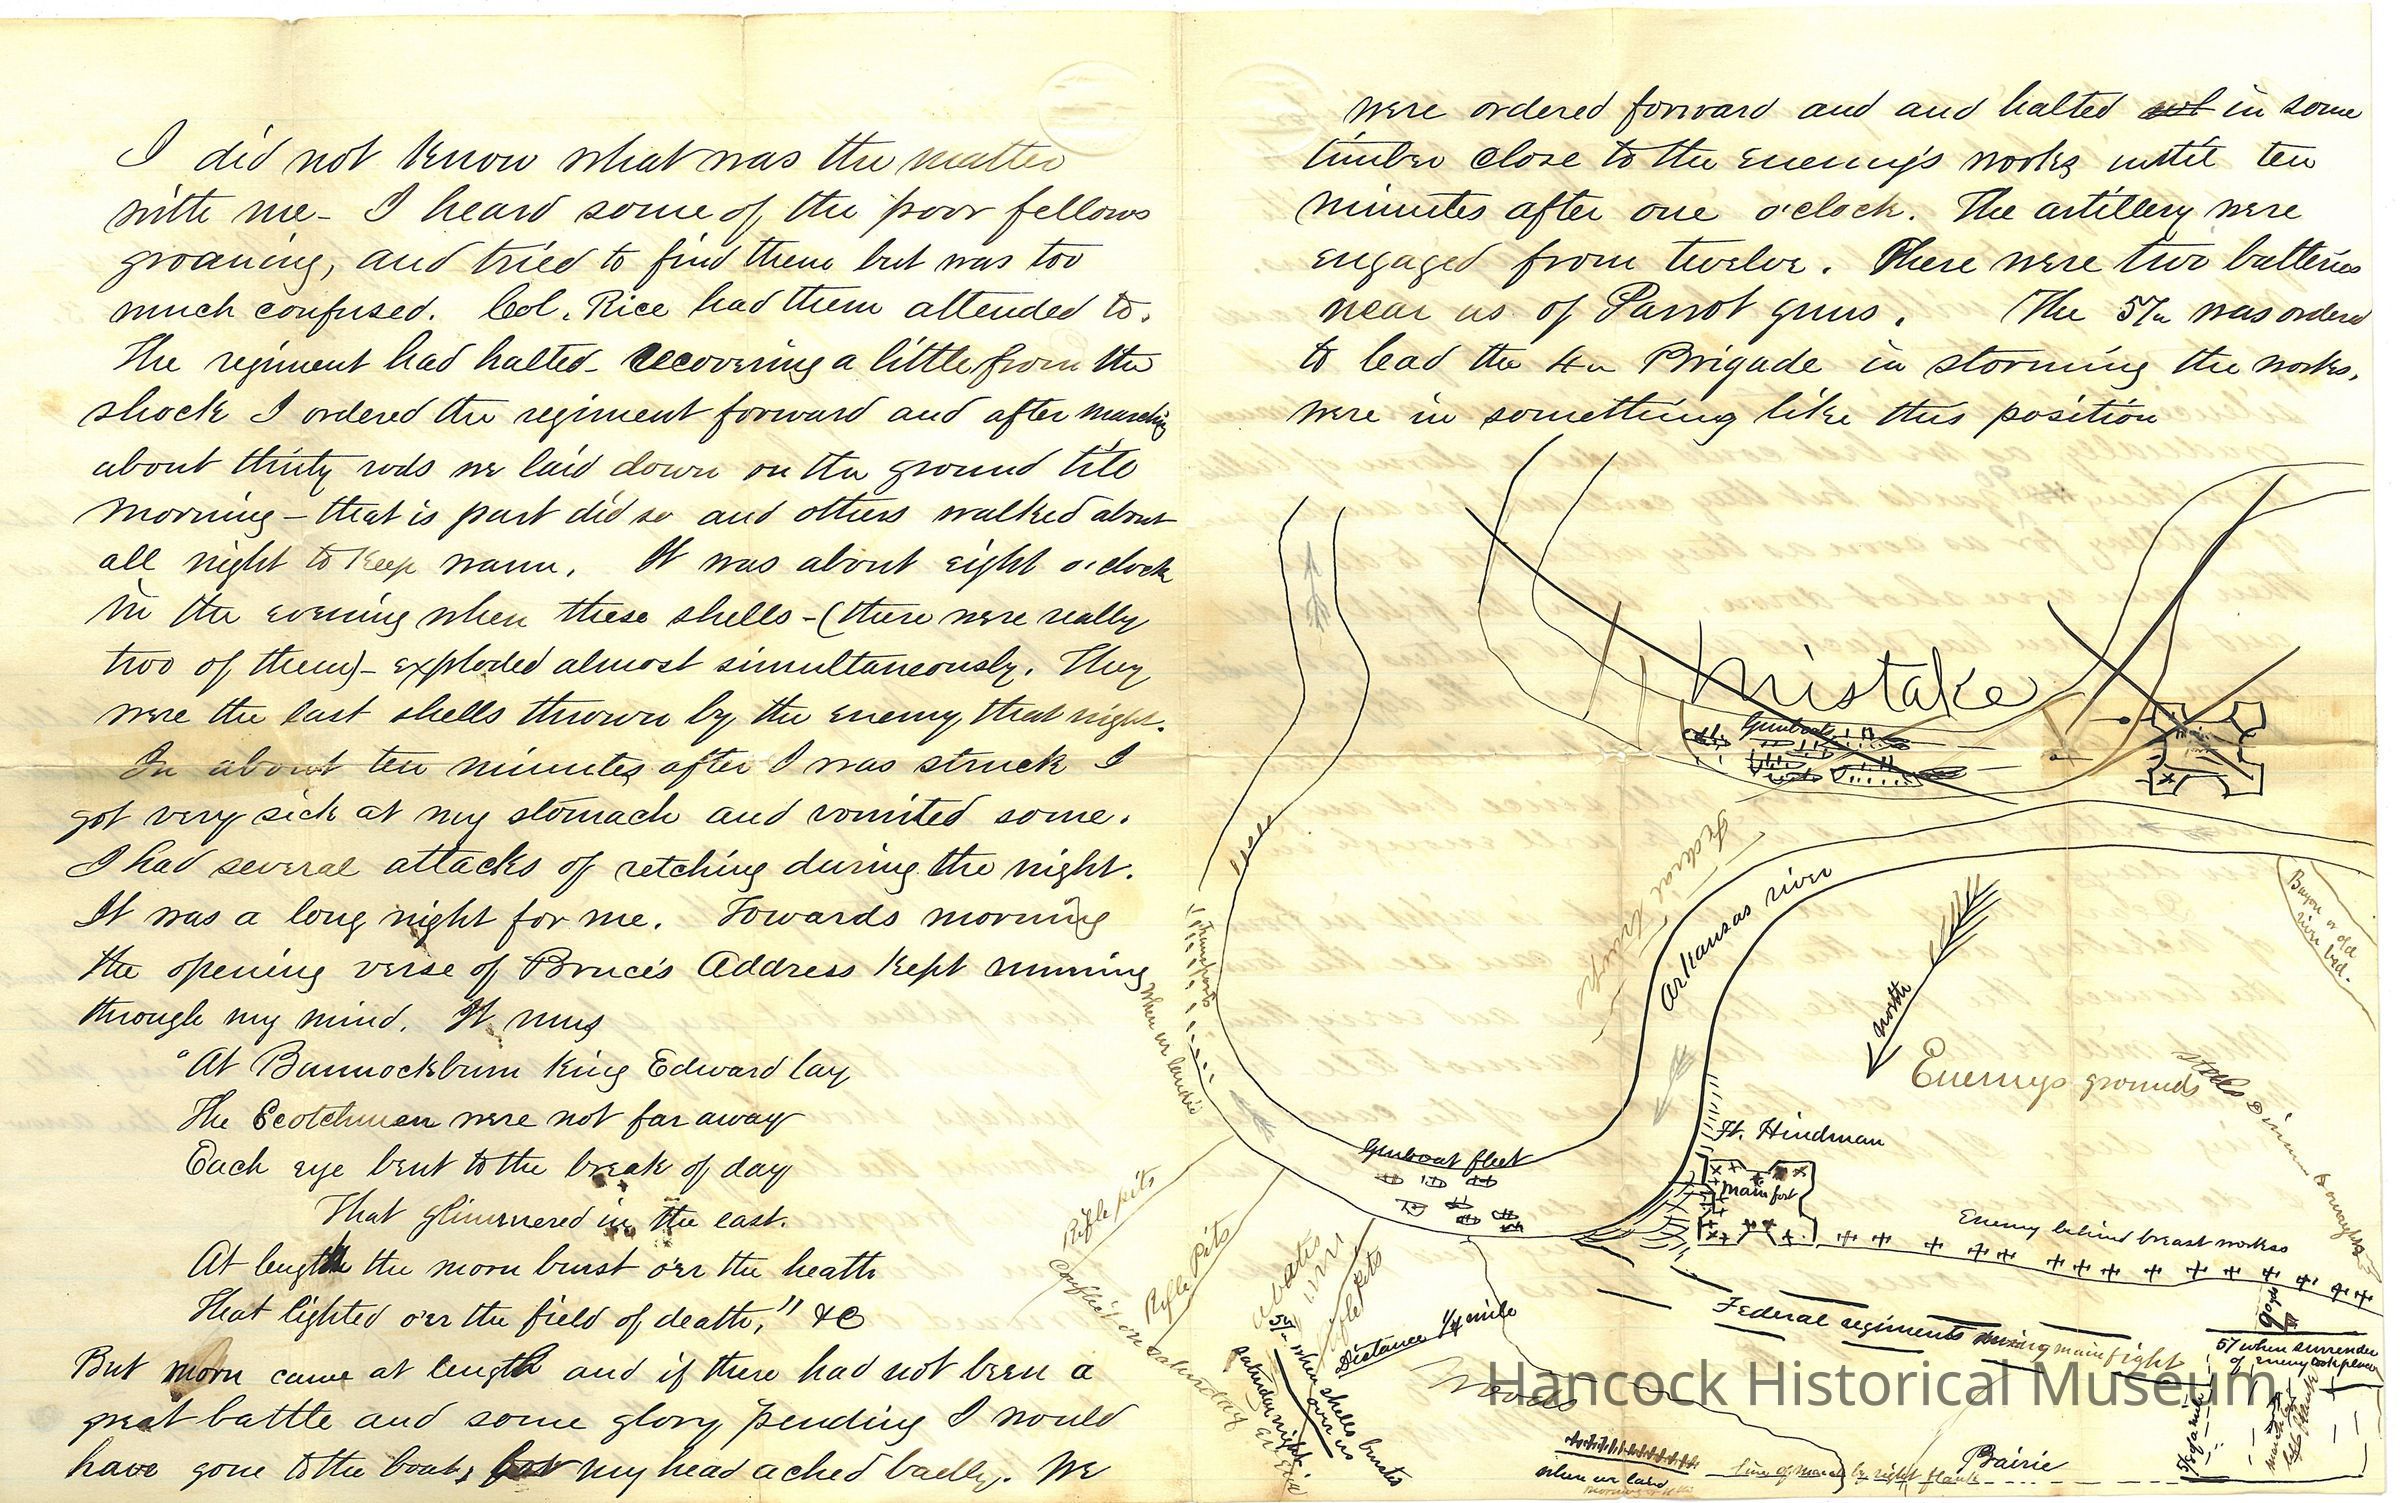 I did not know what was the matter
with me - I heard some of the poor fellows
groaning, and tried to find them but was too
much confused. Col. Rice had them attended to.
The regiment had halted - Recovering a little from the
shock I ordered the regiment forward and after marching
about thirty rods we laid down on the ground till
morning - that is part did so and others walked about
all night to keep warm. It was about eight o'clock
in the evening when these shells - (there were really
two of them) - exploded almost simultaneously. They
were the last shells thrown by the enemy that night.
In about ten minutes after I was struck I
got very sick at my stomach and vomited some.
I had several attacks of retching during the night.
It was a long night for me. Towards morning
the opening verse of Bruce's Address kept running
through my mind. It runs
"At Bannockburn King Edward lay
The Scotchmen were not far away
Each eye bent to the break of day
That glimmered in the east.
At length the morn burst o'er the heath
That lighted o'er the field of death," &C
But morn came at length and if there had not been a
great battle and some glory pending I would
have gone to the boats, for my head ached badly. We
were ordered forward and and halted in some
timber close to the enemy's works until ten
minutes after one o'clock. The artillery were
engaged from twelve. There were two batteries
near us of Parrot guns. The 57th was ordered
to lead the 4th Brigade in storming the works.
were in something like this position
Mistake
Gunboats
Levee
Transports
When we landed
Federal
Arkansas river
North
Bayou or old
river bed.
Enemys grounds
Ft. Hindman
main fort
Gunboat fleet
Rifle pits
Rifle Pits
Rifle pits
Enemy behind breast works
Distance 1/4 mile
Federal regiments during main fight
57th when shells bursted
over us
Saturday night
57 when surrender
of enemy took place
Woods
when we laid
line of march by right flank
Prairie
left flank
Hancock Historical Museum